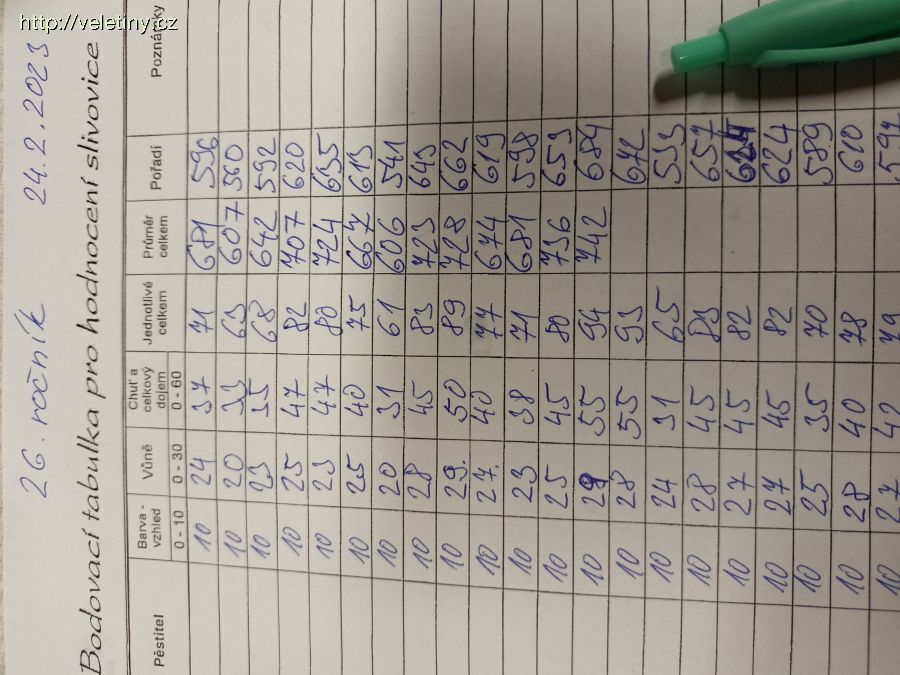 http://veletiny.cz
26. ročník 24.2.2023
Bodovací tabulka pro hodnocení slivovice
Pěstitel Barva - vzhled 0 - 10 Vůně 0 - 30 Chuť a celkový dojem 0 - 60 Jednotlivé celkem Průměr celkem Pořadí Poznámky
10 24 37 71 681 596
10 20 33 63 607 560
10 23 35 68 642 592
10 25 47 82 707 620
10 23 47 80 724 635
10 25 40 75 667 613
10 20 31 61 606 541
10 28 45 83 723 645
10 29. 50 89 728 662
10 27. 40 77 674 619
10 23 38 71 681 598
10 25 45 80 736 653
10 29 55 94 742 684
10 28 55 93 672
10 24 31 65 533
10 28 45 83 657
10 27 45 82 624
10 27 45 82 624
10 25 35 70 589
10 28 40 78 610
10 27 42 79